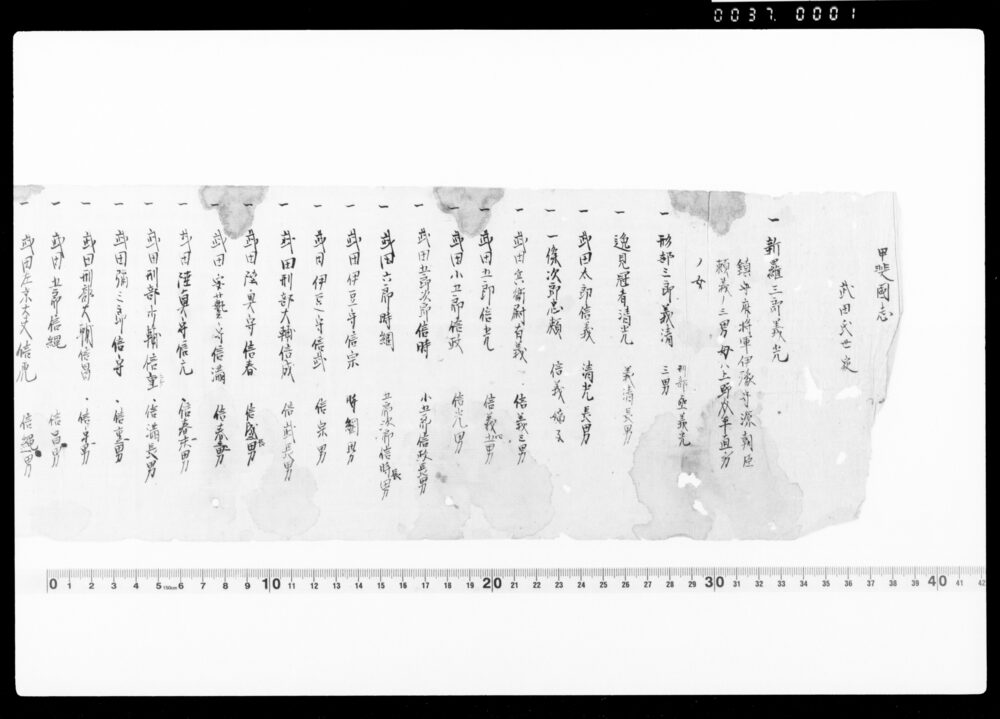 0037 0001
甲斐國志
武田氏世
一 新羅三郎義光
鎮守府将軍伊豫守源朝臣
頼義ノ三男母ハ上野介平直方
ノ女
一 形部三郎義清 三男 刑部丞義光
一 逸見冠者清光 義清長男
一 武田太郎信義 清光長男
一 一條次郎忠頼 信義
一 武田兵衛尉有義 信義三男
一 武田五郎信光 信義五男
一 武田小五郎信政 信光男
一 武田五郎次郎信時 小五郎信政長男
一 武田六郎時綱 五郎次郎信時長男
一 武田伊豆守信宗 時綱男
一 武田伊豆守信武 信宗男
一 武田刑部大輔信成 信武長男
一 武田陸奥守信春 信成長男
一 武田安藝守信満 信春男
一 武田陸奥守信元 信春末男
一 武田刑部少輔信重 信満長男
一 武田彌三郎信守 信重男
一 武田刑部大輔信昌 信守男
一 武田五郎信縄 信昌男
一 武田左京大夫信虎 信縄男
0 1 2 3 4 5 150cm 6 7 8 9 10 11 12 13 14 15 16 17 18 19 20 21 22 23 24 25 26 27 28 29 30 31 32 33 34 35 36 37 38 39 40 41 42